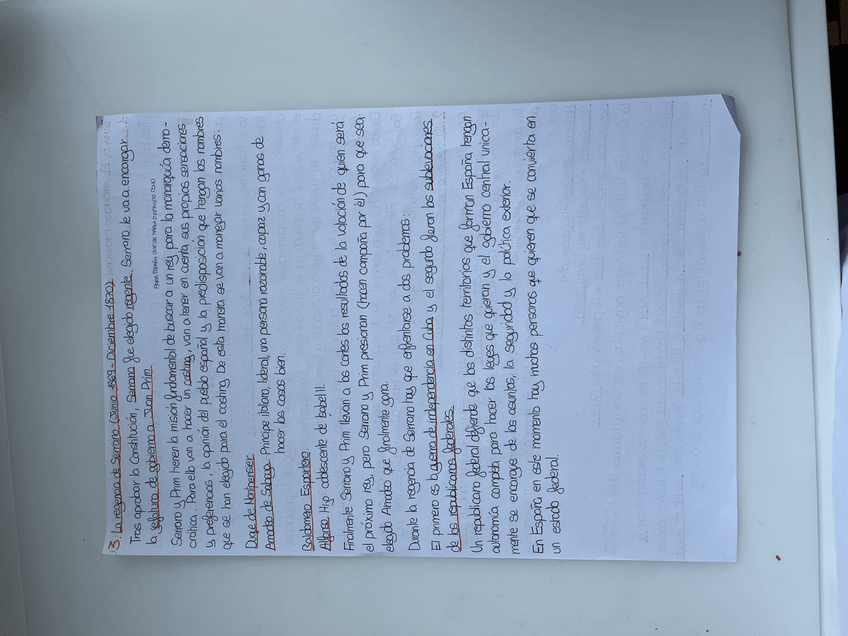 3. La regencia de Serrano (Junio 1869 - Diciembre 1870)
Tras aprobar la Constitución, Serrano fue elegido regente. Serrano le va a encargar
la jefatura de gobierno a Juan Prim.
Serrano y Prim tienen la misión fundamental de buscar a un rey para la monarquía demo-
crática. Para ello van a hacer un casting, van a tener en cuenta sus propias sensaciones
y preferencias, la opinión del pueblo español y la predisposición que tengan los nombres
que se han elegido para el casting. De esta manera se van a manejar varios nombres:
Duque de Montpensier
Amadeo de Saboya. Príncipe italiano, liberal, una persona razonable, capaz y con ganas de
hacer las cosas bien.
Baldomero Espartero
Alfonso. Hijo adolescente de Isabel II.
Finalmente Serrano y Prim llevan a las cortes los resultados de la votación de quien será
el próximo rey, pero Serrano y Prim presionan (hacen campaña por él) para que sea
elegido Amadeo que finalmente gana.
Durante la regencia de Serrano hay que enfrentarse a dos problemas:
El primero es la guerra de independencia en Cuba y el segundo fueron las sublevaciones
de los republicanos federales.
Un republicano federal defiende que los distintos territorios que forman España tengan
autonomía completa para hacer las leyes que quieran y el gobierno central única-
mente se encargue de los asuntos, la seguridad y la política exterior.
En España en este momento hay muchas personas que quieren que se convierta en
un estado federal.